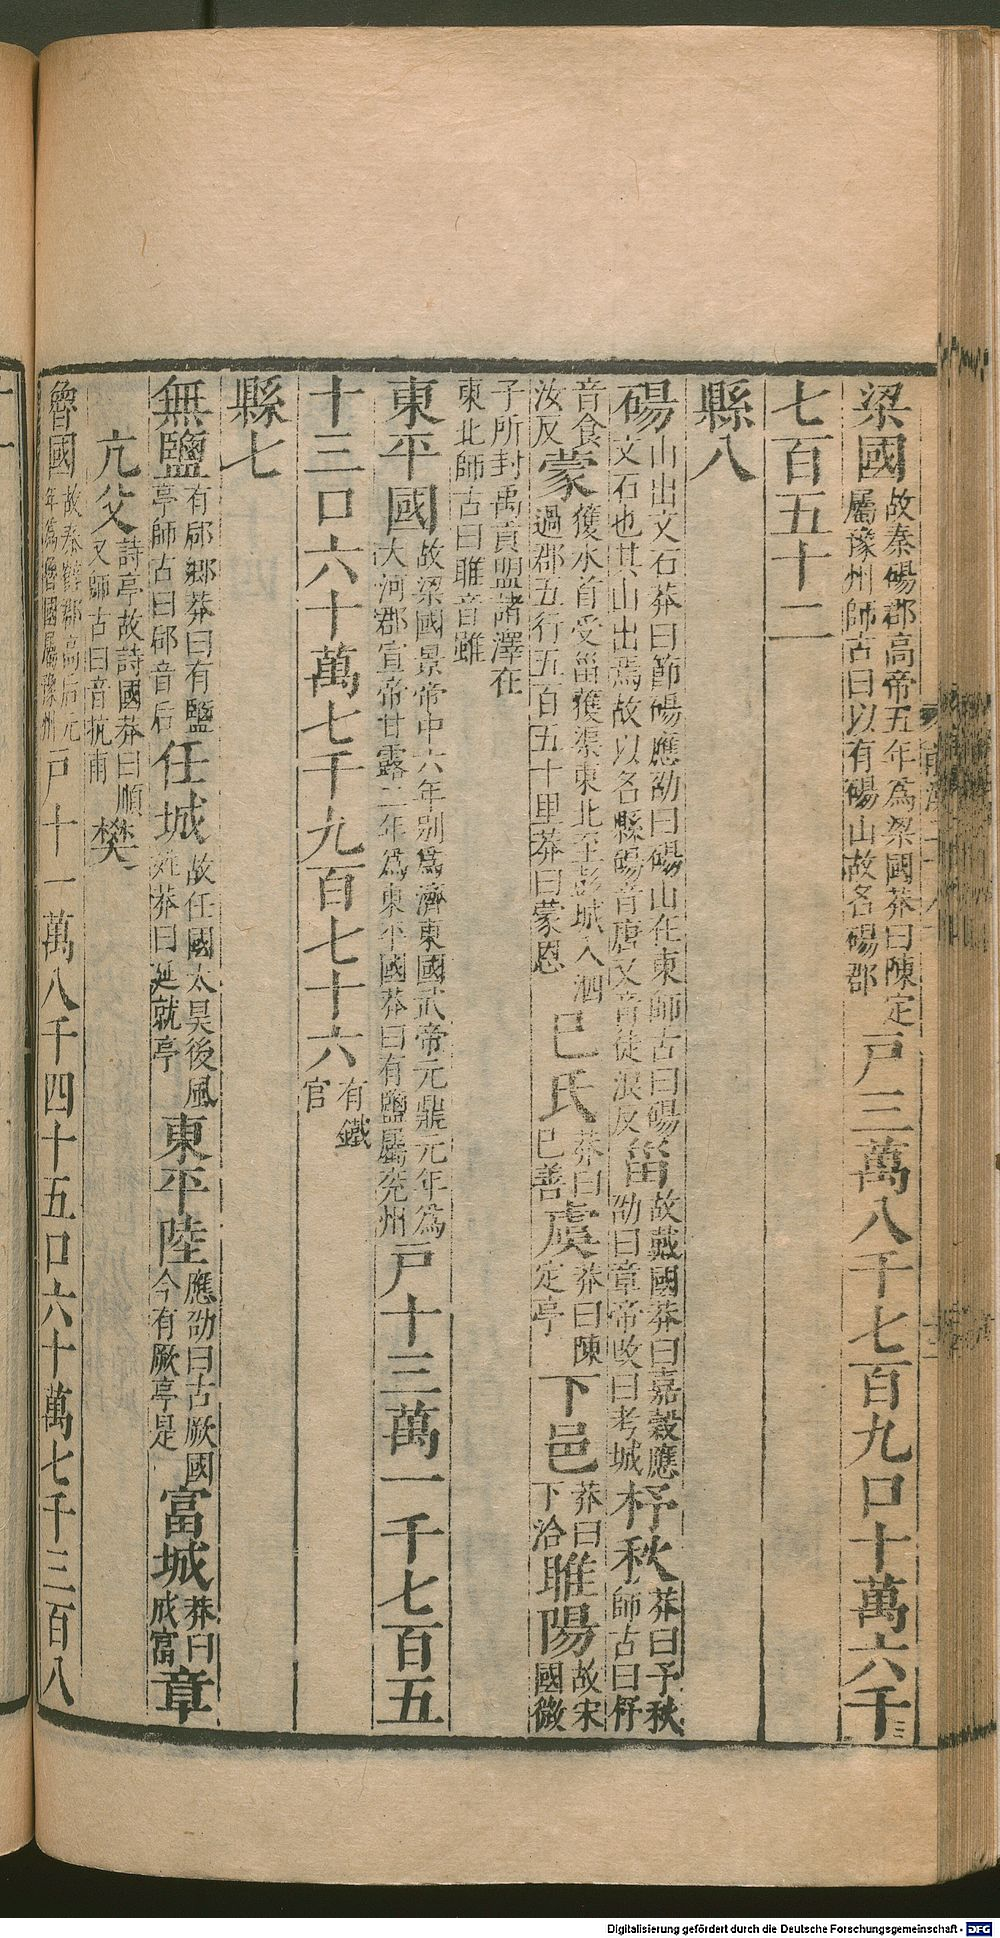 梁國故秦碭郡高帝五年爲梁國莽曰陳定屬豫州師古曰以有碭山故名碭郡戸三萬八千七百九口十萬六千
七百五十二
縣八
碭山出文石莽曰節碭應劭曰碭山在東師古曰碭文石也其山出焉故以名縣碭音唐又音徒浪反甾故戴國莽曰嘉穀應劭曰章帝改曰考城杼秋莽曰予秋師古曰杼
音食汝反蒙獲水首受甾獲渠東北至彭城入泗過郡五行五百五十里莽曰蒙恩已氏莽曰已善虞莽曰陳定亭下邑莽曰下洽睢陽故宋國微
子所封禹貢盟諸澤在東北師古曰睢音雖
東平國故梁國景帝中六年别爲濟東國武帝元鼎元年爲大河郡宣帝甘露二年爲東平國莽曰有鹽屬兖州戸十三萬一千七百五
十三口六十萬七千九百七十六有鐵官
縣七
無鹽有郈鄉莽曰有鹽亭師古曰郈音后任城故任國太昊後風姓莽曰延就亭東平陸應劭曰古厥國今有厥亭是富城莽曰成富章
亢父詩亭故詩國莽曰順父師古曰音抗甫樊
魯國故秦薛郡高后元年爲魯國屬豫州戸十一萬八千四十五口六十萬七千三百八
Digitalisierung gefördert durch die Deutsche Forschungsgemeinschaft - DFG